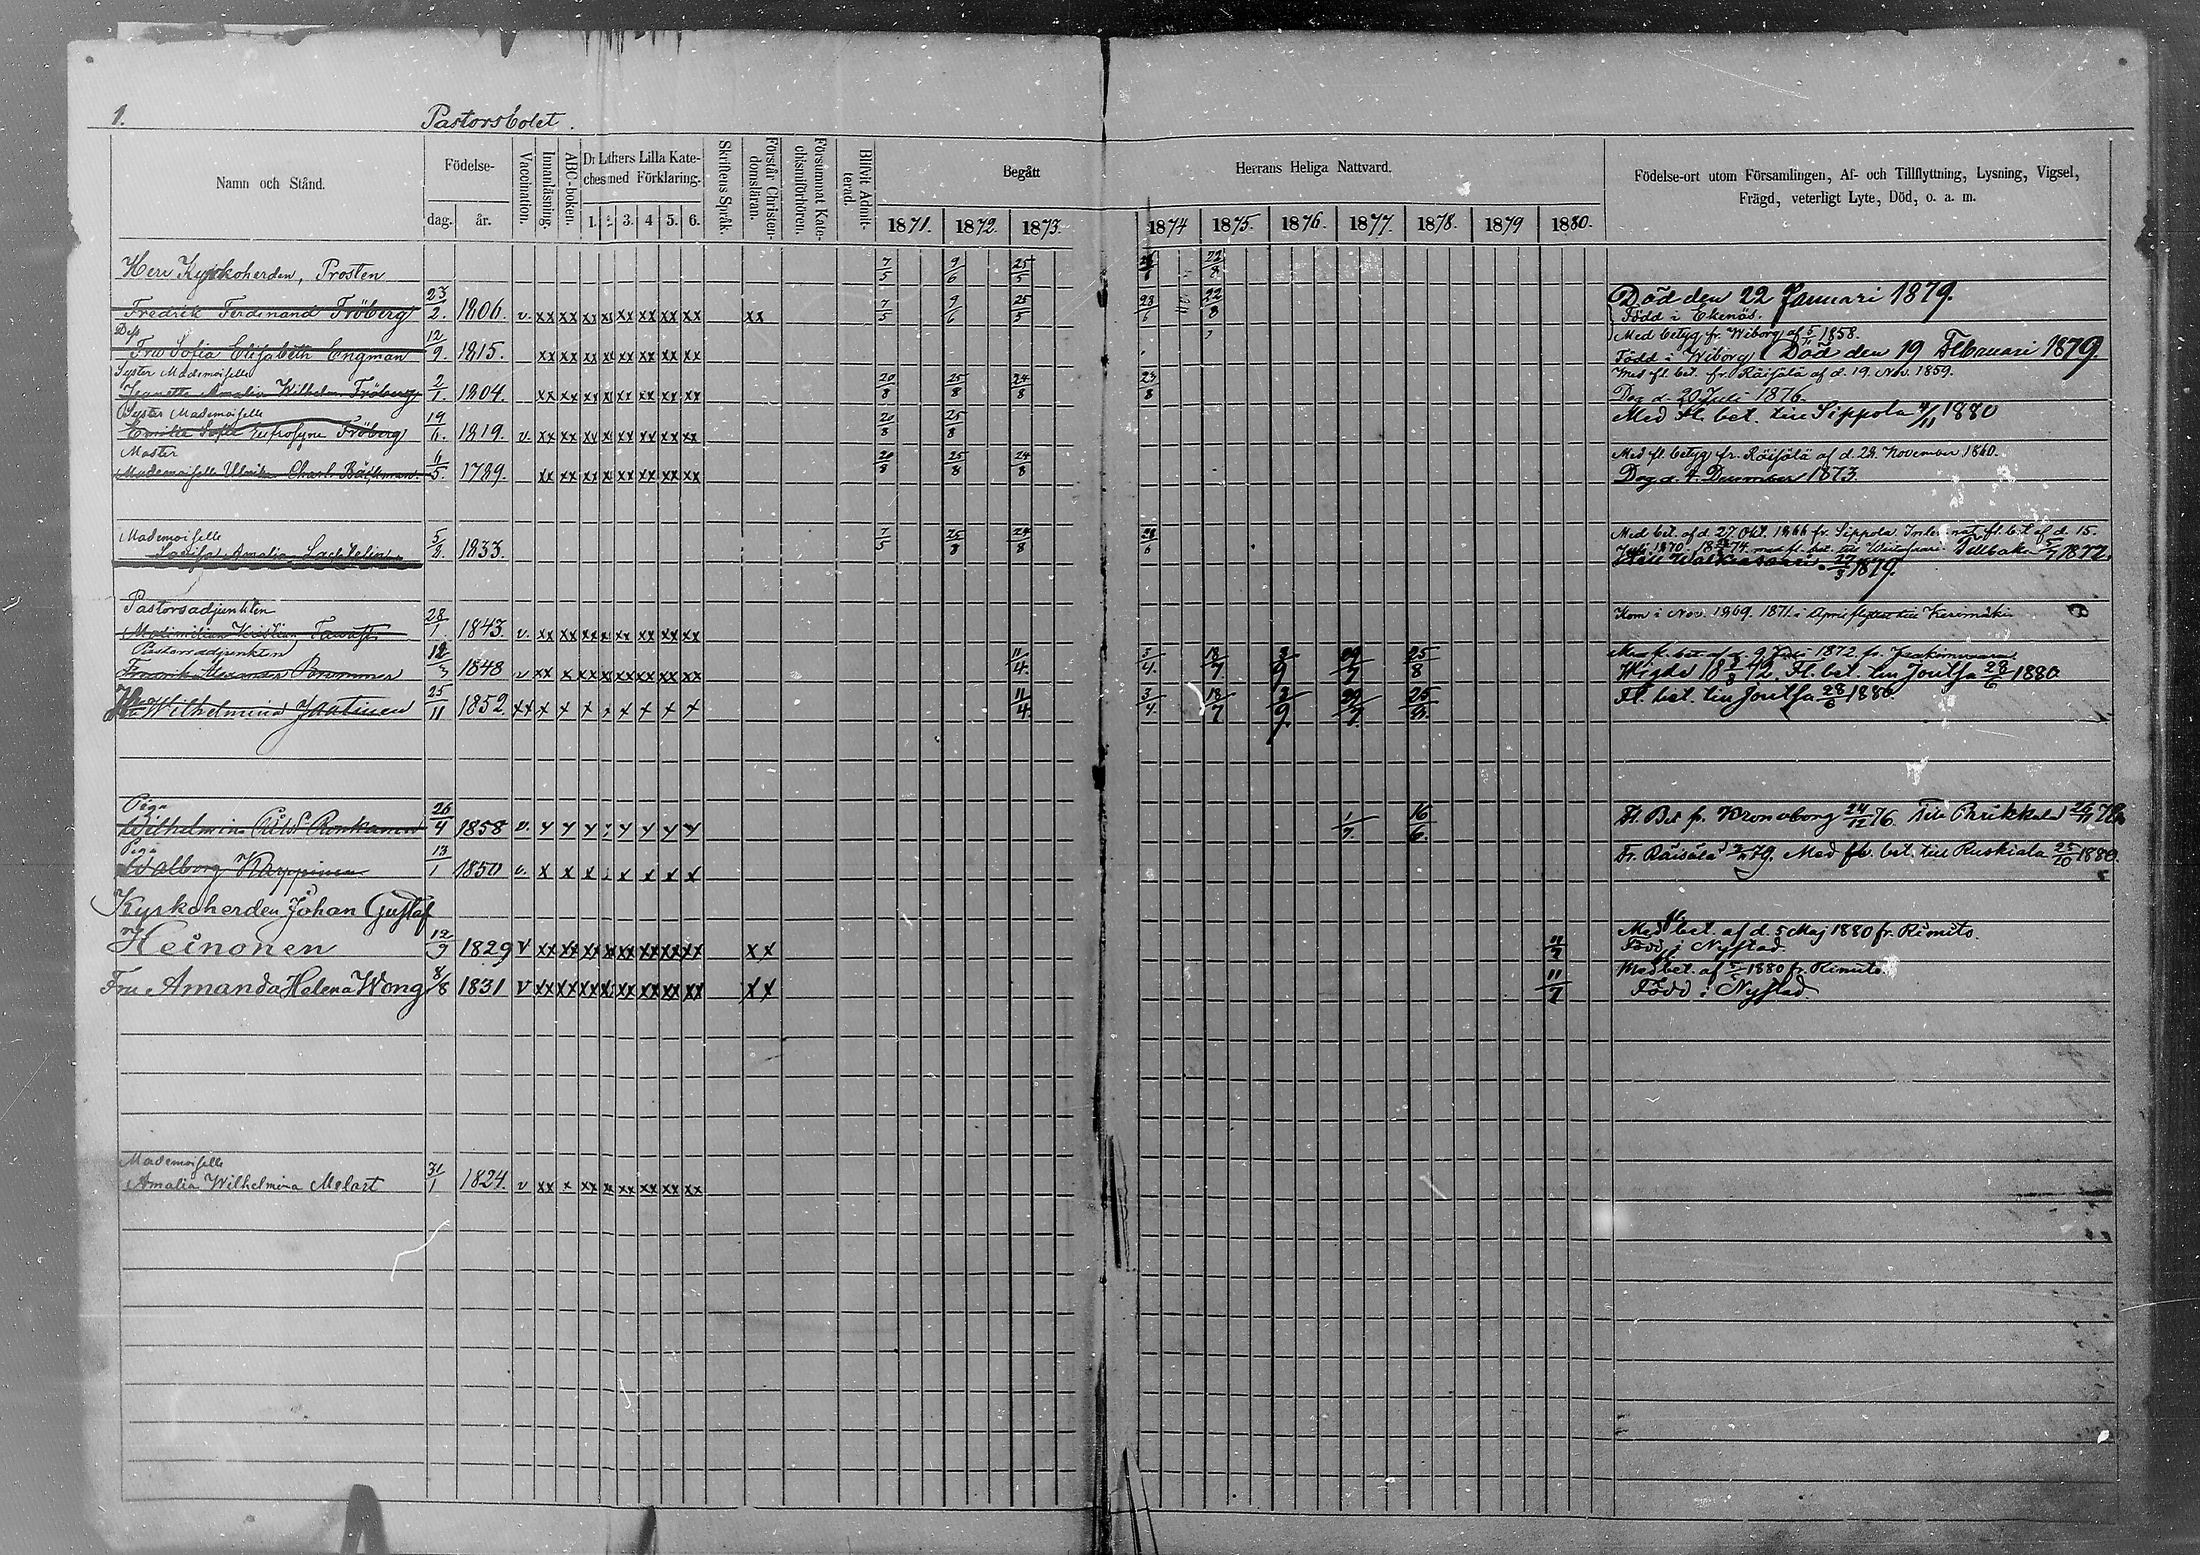 1. Pastorsbolet.
Namn och Stånd. Födelse- dag. år. Vaccination. Innanläsning. ABC-boken. Dr Luthers Lilla Kate-
ches med Förklaring. 1. 2. 3. 4 5. 6. Skriftens Språk. Förstår Christen-
domsläran. Försummat Kate-
chismiförhören. Blifvit Admit-
terad. Begått Herrans Heliga Nattvard. Födelse-ort utom Församlingen, Af- och Tillflyttning, Lysning, Vigsel,
Frägd, veterligt Lyte, Död, o. a. m.
1871. 1872. 1873. 1874 1875. 1876. 1877. 1878. 1879 1880.
Herr Kyrkoherden, Prosten 7/5 9/6 25/5 22/8
Fredrik Ferdinand Fröberg 23/2. 1806. v. xx xx xx xx xx xx xx xx xx 7/5 9/6 25/5 22/8 Död den 22 Januari 1879.
Född i Ekenäs.
Dess Med betyg fr. Wiborg af 5/11 1858.
Fru Sofia Elisabeth Engman 12/9. 1815. xx xx xx xx xx xx xx xx Född i Wiborg Död den 19 Februari 1879
Syster Mademoiselle Med fl. bet. fr. Räisälä af d. 19. Nov. 1859.
Jeanette Amalia Wilhelm. Fröberg 2/1. 1804. xx xx xx xx xx xx xx xx 20/8 25/8 24/8 23/8 Dog d. 20 Juli 1876.
Syster Mademoiselle
Emilie Sofie Eufrosyne Fröberg 19/6. 1819. v. xx xx xx xx xx xx xx xx 20/8 25/8 Med fl. bet. till Sippola 1880
Moster Med fl. betyg fr. Räisälä af d. 28. November 1860.
Mademoiselle Ulrika Charl. 11/5. 1789. xx xx xx xx xx xx xx xx 20/8 25/8 24/8 Dog d. 4. December 1873.
Mademoiselle Med bet. af d. 27. Okt. 1866 fr. Sippola. fl. bet. af d. 15.
Lovisa Amalia 5/8. 1833. 7/5 25/8 24/8 Tillbaka 1872.
Walkeasaari 27/3 1879.
Pastorsadjunkten
Kristian 28/1. 1843. v. xx xx xx xx xx xx xx xx Kom i Nov. 1869. 1871 till Kerimäki
Pastorsadjunkten Med fl. bet. af d. 9 1872 fr.
Fredrik Alexander 12/3 1848 v xx x xx xx xx xx xx xx 11/4. 3/4. 18/7 2/9 29/7 25/8 Wigde 18 72. Fl. bet. till Joutsa 28/6 1880
Wilhelmina Jaatinen 25/11 1852. xx x x x x x x x 11/4. 3/4. 18/7 2/9. 29/7. 25/8. Fl. bet. till Joutsa 28/6 1880
Piga
Wilhelmina Ronkanen 26/4 1858 v. 1/7. 16/6. Fl. Bet fr. Kronoborg 24/12 76. Till Parikkala 78
Piga
Walborg Karppinen 13/1 1850 v. x x x x x x x Fr. Räisälä 79. Med fl. bet. till Ruskiala 25/10 1880.
Kyrkoherden Johan Gustaf
Heinonen 12/9 1829 v xx xx xx xx xx xx xx xx xx 11/7 Med fl. bet. af d. 5 Maj 1880 fr. Rimito.
Född i Nystad.
Fru Amanda Helena Wong 8/8 1831 v xx xx xx xx xx xx xx xx xx 11/7 Med bet. af 5/5 1880 fr. Rimito
Född i Nystad.
Mademoiselle
Amalia Wilhelmina Melart 31/1 1824. v xx x xx xx xx xx xx xx